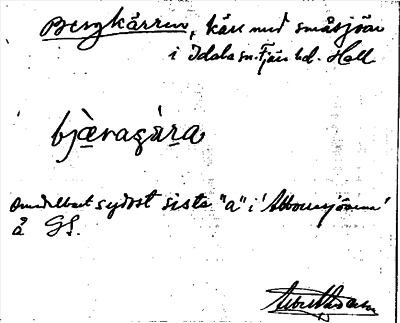 Bergkärren, kärr med småsjöar
i Idala sn. Fjäre hd. Hall
bjæragára
omedelbart sydost sista "a" i 'Attboresjöarna'
å GS.